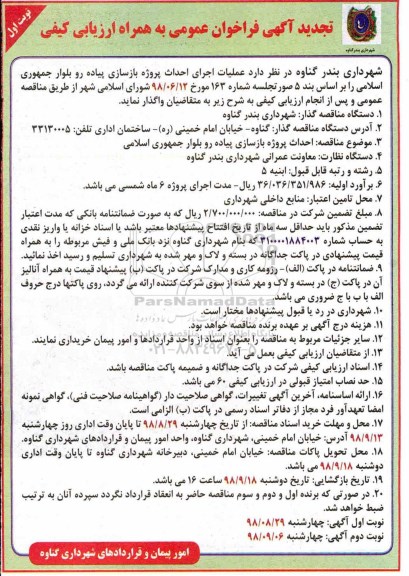 نوبت اول
تجدید آگهی فراخوان عمومی به همراه ارزیابی کیفی
شهرداری بندر گناوه
شهرداری بندر گناوه در نظر دارد عملیات اجرای احداث پروژه بازسازی پیاده رو بلوار جمهوری
اسلامی را بر اساس بند ۵ صورتجلسه شماره ۱۶۳ مورخ ۹۸/۰۶/۱۲ شورای اسلامی شهر از طریق مناقصه
عمومی و پس از انجام ارزیابی کیفی به شرح زیر به متقاضیان واگذار نماید.
۱. دستگاه مناقصه گذار: شهرداری بندر گناوه
۲. آدرس دستگاه مناقصه گذار: گناوه- خیابان امام خمینی (ره)- ساختمان اداری تلفن: ۳۳۱۳۰۰۰۵
۳. موضوع مناقصه: احداث پروژه بازسازی پیاده رو بلوار جمهوری اسلامی
۴. دستگاه نظارت: معاونت عمرانی شهرداری بندر گناوه
۵. رشته و رتبه قابل قبول: ابنیه ۵
۶. برآورد اولیه: ۳۶/۰۳۶/۳۵۱/۹۸۶ ریال- مدت اجرای پروژه ۶ ماه شمسی می باشد.
۷. محل تامین اعتبار: منابع داخلی شهرداری
۸. مبلغ تضمین شرکت در مناقصه: ۲/۷۰۰/۰۰۰/۰۰۰ ریال که به صورت ضمانتنامه بانکی که مدت اعتبار
تضمین مذکور باید حداقل سه ماه از تاریخ افتتاح پیشنهادها معتبر باشد یا اسناد خزانه یا واریز نقدی
به حساب شماره ۳۱۰۰۰۰۱۸۸۴۰۰۳ که بنام شهرداری گناوه نزد بانک ملی و فیش مربوطه را به همراه
قیمت پیشنهادی در پاکت جداگانه در بسته و لاک و مهر شده به شهرداری تسلیم و رسید اخذ نمائید.
۹. ضمانتنامه در پاکت (الف)- رزومه کاری و مدارک شرکت در پاکت (ب) پیشنهاد قیمت به همراه آنالیز
آن در پاکت (ج) در بسته و لاک و مهر شده از سوی شرکت کننده ارائه می گردد، روی پاکتها درج حروف
الف یا ب یا ج ضروری می باشد
۱۰. شهرداری در رد یا قبول پیشنهادها مختار است.
۱۱. هزینه درج آگهی بر عهده برنده مناقصه خواهد بود.
۱۲. سایر جزئیات مربوط به مناقصه را بعنوان اسناد از واحد قراردادها و امور پیمان خریداری نمایند.
۱۳. از متقاضیان ارزیابی کیفی بعمل می آید.
۱۴. اسناد ارزیابی کیفی شرکت در پاکت جداگانه و ضمیمه پاکت مناقصه باشد.
۱۵. حد نصاب امتیاز قبولی در ارزیابی کیفی ۶۰ می باشد.
۱۶. ارائه اساسنامه، آخرین آگهی تغییرات، گواهی صلاحیت دار (گواهینامه صلاحیت فنی)، گواهی نمونه
امضا تعهدآور فرد مجاز از دفاتر اسناد رسمی در پاکت (ب) الزامی است.
۱۷. محل و مهلت خرید اسناد مناقصه: از تاریخ چهارشنبه ۹۸/۸/۲۹ تا پایان وقت اداری روز چهارشنبه
۹۸/۹/۱۳ آدرس: خیابان امام خمینی، شهرداری گناوه، واحد امور پیمان و قراردادهای شهرداری گناوه.
۱۸. محل تحویل پاکات مناقصه: خیابان امام خمینی، دبیرخانه شهرداری گناوه تا پایان وقت اداری
دوشنبه ۹۸/۹/۱۸ می باشد.
۱۹. تاریخ بازگشایی: تاریخ دوشنبه ۹۸/۹/۱۸ ساعت ۱۶ می باشد.
۲۰. در صورتی که برنده اول و دوم و سوم مناقصه حاضر به انعقاد قرارداد نگردد سپرده آنان به ترتیب
ضبط خواهد شد.
نوبت اول آگهی: چهارشنبه ۹۸/۰۸/۲۹
نوبت دوم آگهی: چهارشنبه ۹۸/۰۹/۰۶
امور پیمان و قراردادهای شهرداری گناوه
ParsNamadData